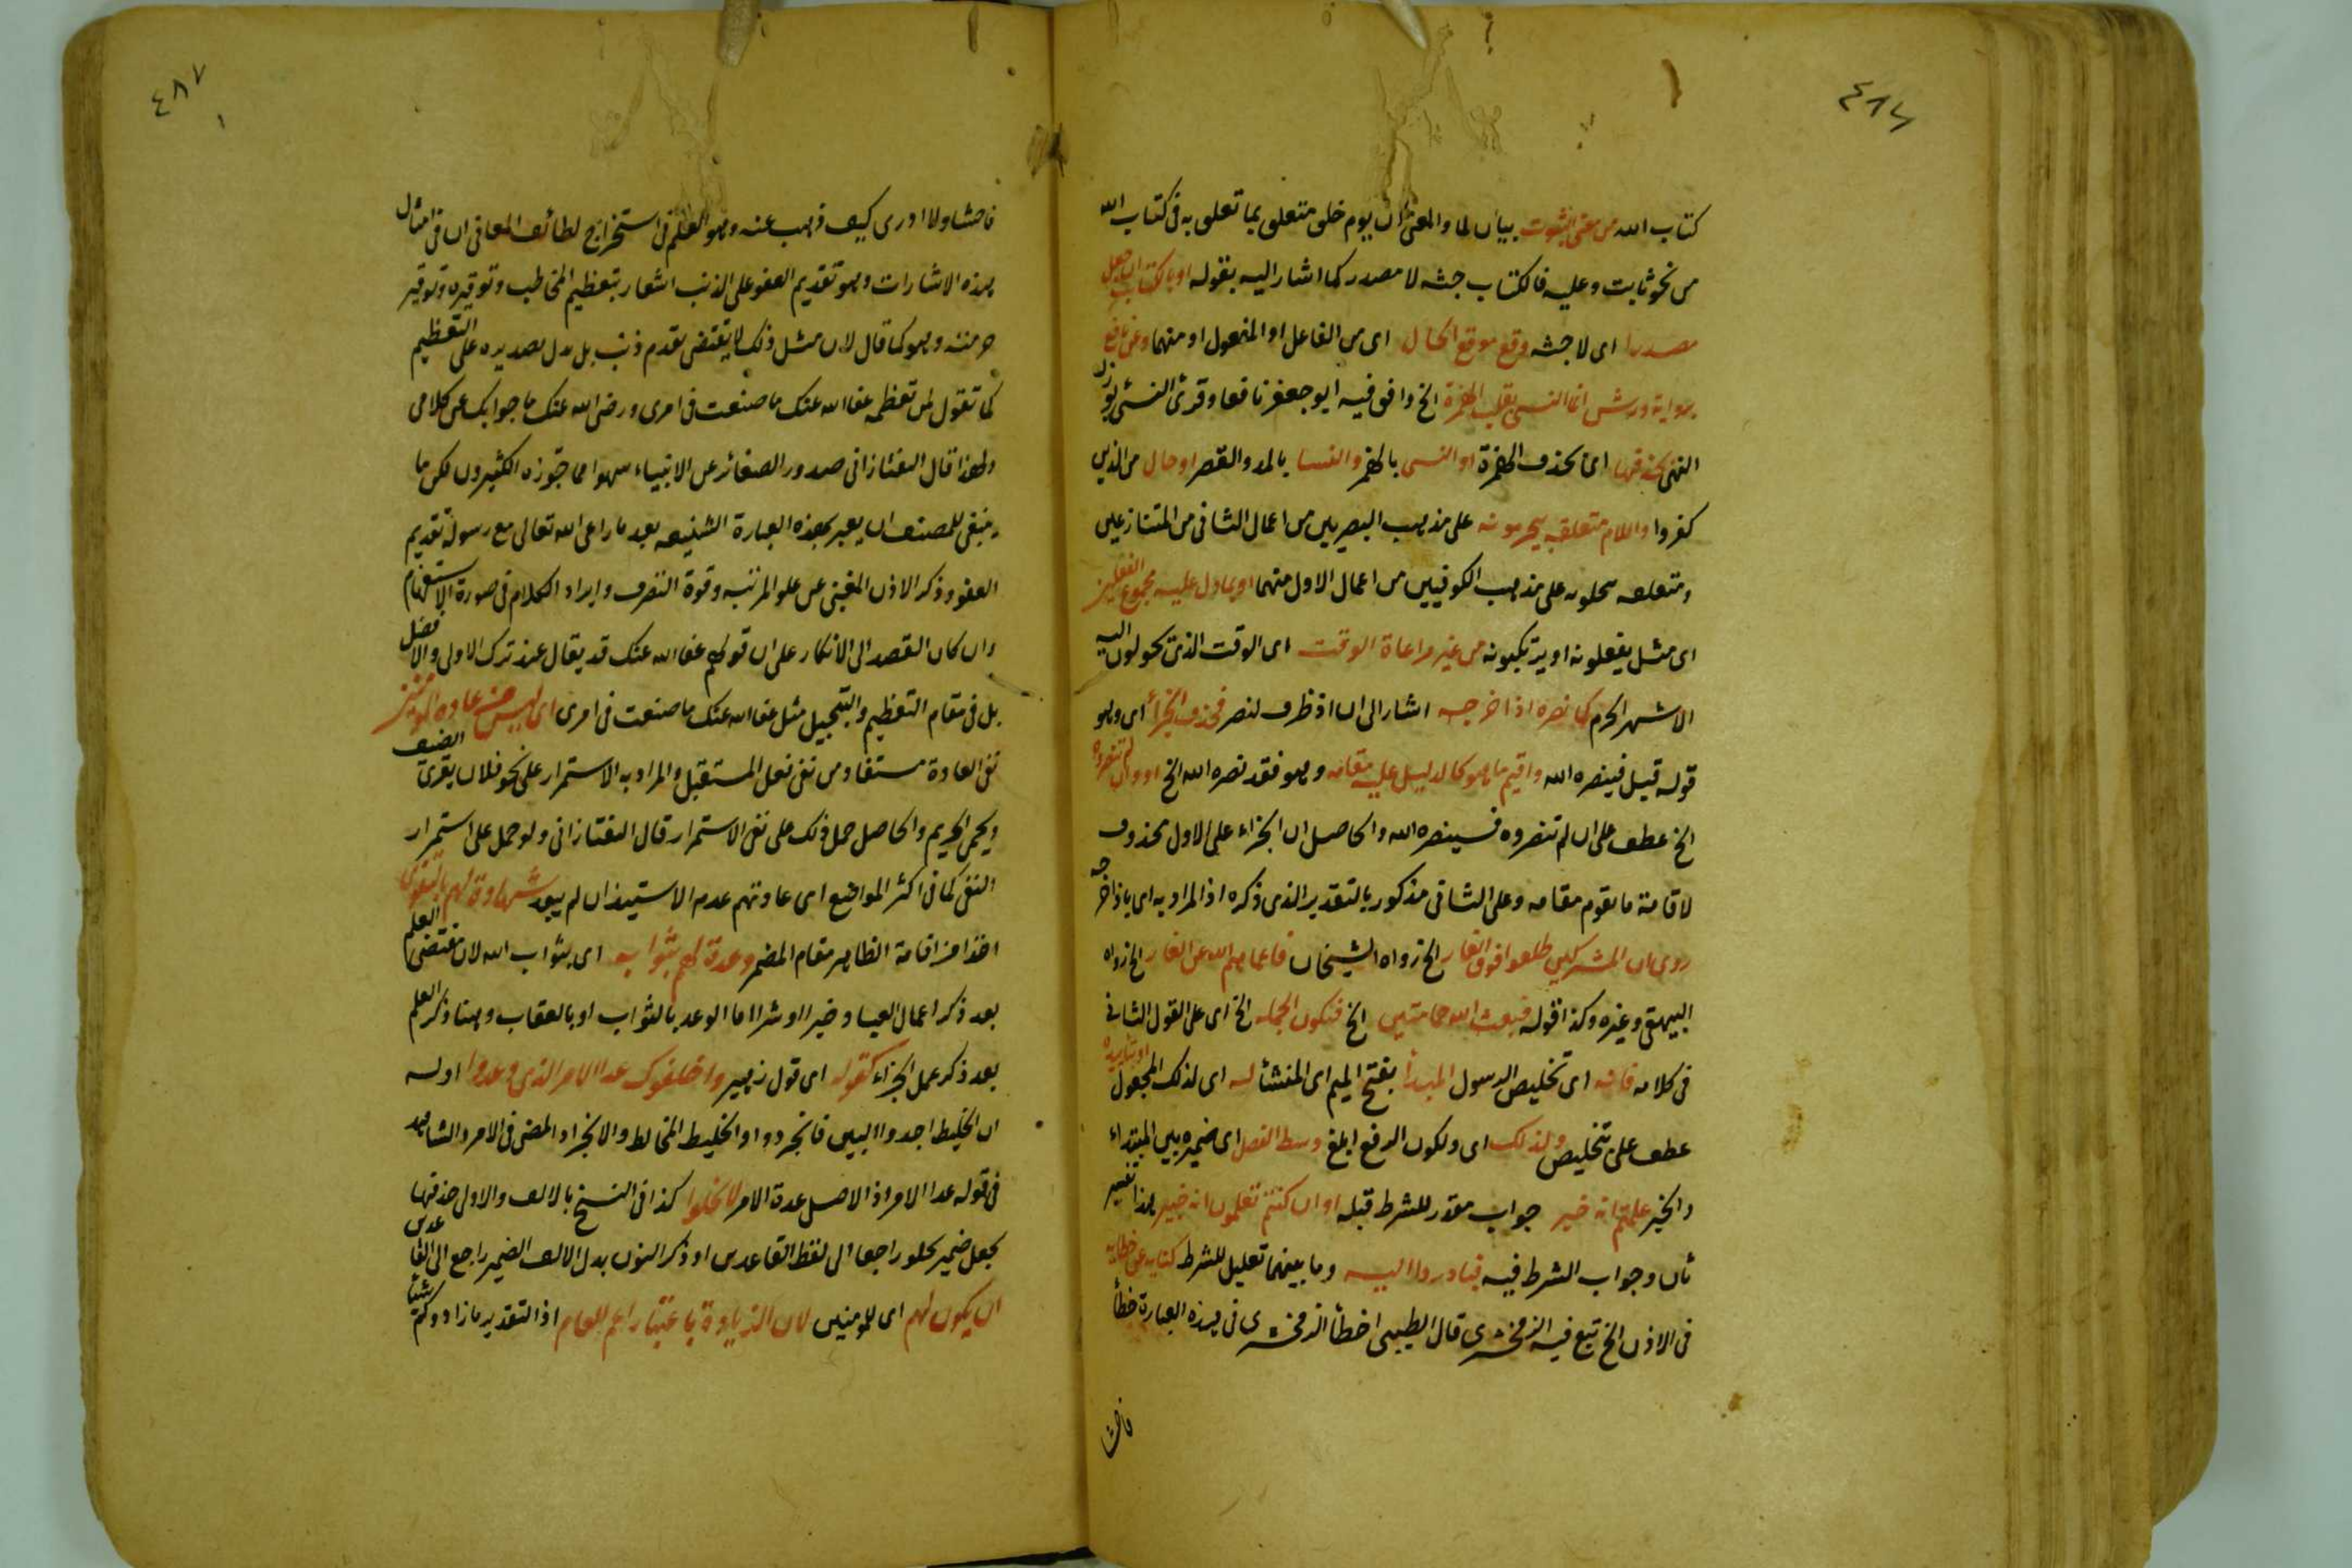 ٤٨٦
كتاب الله من معنى الثبوت بيان لما والمعنى ان يوم خلق متعلق بما تعلق به فى كتاب الله
من نحو ثابت وعليه فالكتاب جثه لا مصدر كما اشار اليه بقوله او بالكتاب ان جعل
مصدرا اى لا جثه وقع موقع الحال اى من الفاعل او المفعول او منهما وعن نافع
برواية ورش انما النسى بقلب الهمزة الخ وافق فيه ابو جعفر نافعا وقرئ النسى بوزن
النهى بحذفها اى بحذف الهمزة او النسى بالهمز والنسا بالمد والقصر او حال من الذين
كفروا واللام متعلقه بيحرمونه على مذهب البصريين من اعمال الثانى من المتنازعين
ومتعلقه يحلونه على مذهب الكوفيين من اعمال الاول منهما او بما دل عليه مجموع الفعلين
اى مثل يفعلونه او يرتكبونه من غير مراعاة الوقت اى الوقت الذى تحولون اليه
الاشهر الحرم كما نصره اذ اخرجه اشار الى ان اذ ظرف لنصر فحذف الجزأ اى وهو
قوله قبل فينصره الله واقيم ما هو كالدليل عليه مقامه وهو فقد نصره الله الخ او وان لم تنصروه
الخ عطف على ان لم تنصروه فسينصره الله والحاصل ان الجزاء على الاول محذوف
لاقامة ما يقوم مقامه وعلى الثانى مذكور بالتقدير الذى ذكره اذ المراد به اى باذ اخرجه
روى ان المشركين طلعوا فوق الغار الخ رواه الشيخان فاعماهم الله عن الغار الخ رواه
البيهقى وغيره وكذا قوله فبعث الله حمامتين الخ فتكون الجملة الخ اى على القول الثانى
فى كلامه فانه اى تخليص الرسول المبدأ بفتح الميم اى المنشأ له اى لذلك المجعول او بتاييده
عطف على تخليص ولذلك اى ولكون الرفع ابلغ وسط الفصل اى ضميره بين المبتداء
والخبر علمتم انه خير جواب مقدر للشرط قبله او ان كنتم تعلمون انه خير هذا تفسير
ثان وجواب الشرط فيه فبادروا اليه وما بينهما تعليل للشرط كناية عن خطايه
فى الاذن الخ تبع فيه الزمخشرى قال الطيبى اخطأ الزمخشرى فى هذه العبارة خطأ
فاحشا
٤٨٧
فاحشا ولا ادرى كيف ذهب عنه وهو العلم فى استخراج لطائف المعانى ان فى امثال
هذه الاشارات وهو تقديم العفو على الذنب اشعار بتعظيم المخاطب وتوقيره وتوقير
حرمته وهو كما قال لان مثل ذلك لا يقتضى تقدم ذنب بل يدل تصديره على التعظيم
كما تقول لمن تعظمه عفا الله عنك ما صنعت فى امرى ورضى الله عنك ما جوابك عن كلامى
ولهذا قال التفتازانى صدور الصغائر عن الانبياء سهوا مما جوزه الكثيرون لكن ما
ينبغى للمصنف ان يعبر بهذه العبارة الشنيعه بعد ما راعى الله تعالى مع رسوله تقديم
العفو وذكر الاذن المغنى عن علو المرتبه وقوة التصرف وايراد الكلام فى صورة الاستفهام
وان كان القصد الى الانكار على ان قولهم عفا الله عنك قد يقال عند ترك الاولى والافضل
بل فى مقام التعظيم والتبجيل مثل عفا الله عنك ما صنعت فى امرى اى ليس من عادة المؤمنين
نفى العادة مستفاد من نفى فعل المستقبل والمراد به الاستمرار على نحو فلان يقرى الضيف
ويحمى الحريم والحاصل حمل ذلك على نفى الاستمرار قال التفتازانى ولو حمل على استمرار
النفى كما فى اكثر المواضع اى عادتهم عدم الاستيذان لم يبعد شهادة لهم بالتقوى
اخذا من اقامة الظاهر مقام المضمر وعدة لهم بثوابه اى بثواب الله لان مقتضى العلم
بعد ذكر اعمال العباد خيرا او شرا اما الوعد بالثواب او بالعقاب وهنا ذكر العلم
بعد ذكر عمل الجزاء كقوله اى قول زهير واخلفوك عدا الامر الذى وعدوا اوله
ان الخليط اجدوا البين فانجردوا والخليط المخالط والانجراد المضى فى الامر والشاهد
فى قوله عدا الامر اذ الاصل عدة الامر لا خلوا كذا فى النسخ بالالف والاولى حذفها
بجعل ضمير يخلو راجعا الى لفظ القاعدين او ذكر النون بدل الالف الضمير راجع الى القاعدين
ان يكون لهم اى للمومنين لان الزيادة باعتبار اعم العام اذ التقدير ما زادوكم شيئا